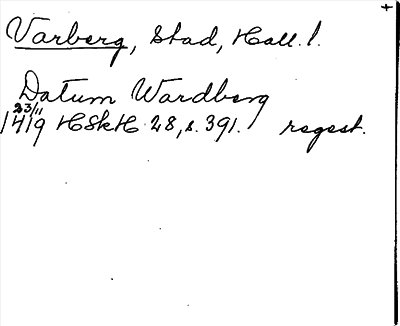 Varberg, Stad, Hall. l.
Datum Wardberg
23/11
1419 HSkH 28, s. 391. regest.